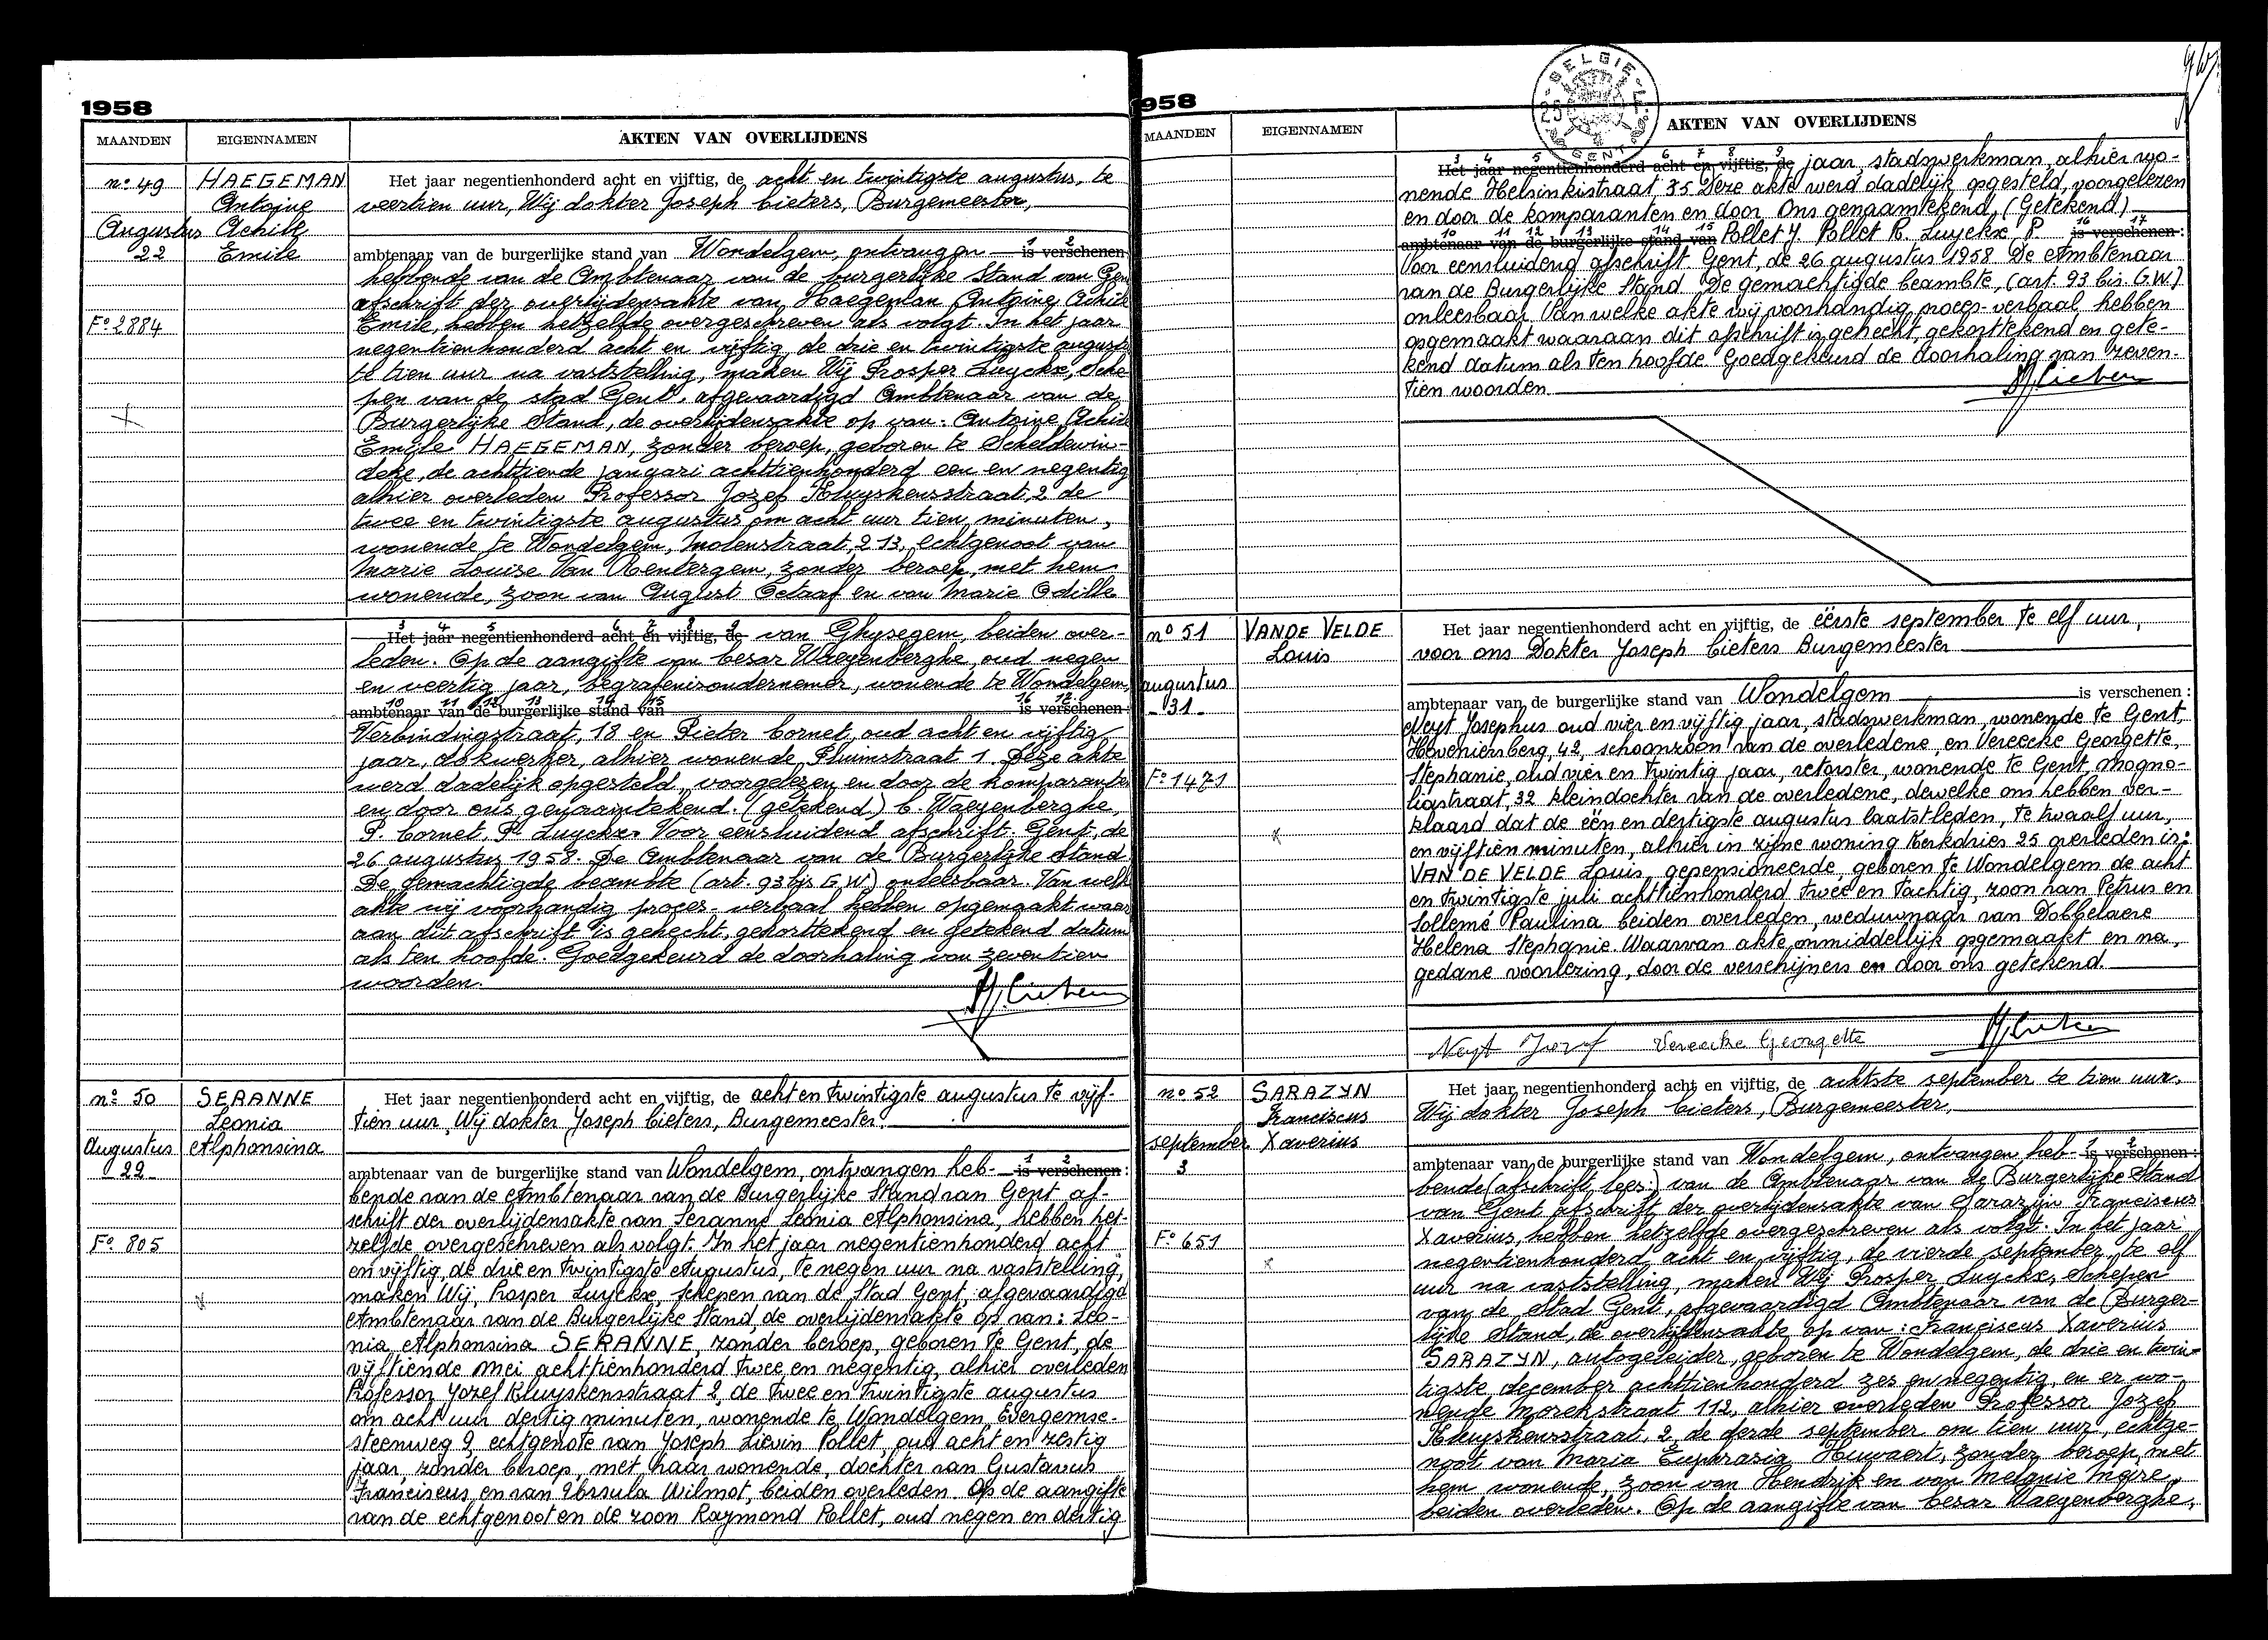 1958
MAANDEN EIGENNAMEN AKTEN VAN OVERLIJDENS
nº 49 HAEGEMAN
Antoine
Augustus Achile
22 Emile
Fº 2884
Het jaar negentienhonderd acht en vijftig, de acht en twintigste augustus, te
veertien uur, Wij dokter Joseph Cieters, Burgemeester,
ambtenaar van de burgerlijke stand van Wondelgem, ontvangen 1 2 is verschenen
hebbende van de Ambtenaar van de burgerlijke Stand van Gen
afschrift der overlijdensakte van Haegeman Antoine Achile
Emile, hebben hetzelfde overgeschreven als volgt. In het jaar
negentienhonderd acht en vijftig, de drie en twintigste august
te tien uur na vaststelling, maken Wij Prosper Luyckx, Sche
pen van de stad Gent, afgevaardigd Ambtenaar van de
Burgerlijke Stand, de overlijdensakte op van: Antoine Achile
Emile HAEGEMAN, zonder beroep, geboren te Scheldewin-
deke, de achttiende januari achttienhonderd een en negentig
alhier overleden Professor Jozef Kluyskensstraat, 2 de
twee en twintigste augustus om acht uur tien minuten,
wonende te Wondelgem, Molenstraat, 213, echtgenoot van
Marie Louise Van Rentergem, zonder beroep, met hem
wonende, zoon van August Octaaf en van Marie Odille
3 4 5 6 7 8 9
Het jaar negentienhonderd acht en vijftig, de van Ghysegem, beiden over-
leden. Op de aangifte van Cesar Waeyenberghe, oud negen
en veertig jaar, begrafenisondernemer, wonende te Wondelgem,
10 11 12 13 14 15 16 17
ambtenaar van de burgerlijke stand van is verschenen:
Verbindingstraat, 18 en Pieter Cornet, oud acht en vijftig
jaar, dokwerker, alhier wonende Pluimstraat 1. Deze akte
werd dadelijk opgesteld, voorgelezen en door de komparanten
en door ons genaamtekend. (getekend) C. Waeyenberghe,
P. Cornet, P. Luyckx. Voor eensluidend afschrift. Gent, de
26 augustus 1958. De Ambtenaar van de Burgerlijke Stand
De gemachtigde beambte (art. 93 bis G.W) onleesbaar. Van welk
akte wij voorhandig proces-verbaal hebben opgemaakt waar
aan dit afschrift is gehecht, gekorttekend en getekend datum
als ten hoofde. Goedgekeurd de doorhaling van zeventien
woorden.
nº 50 SERANNE
Leonia
Augustus Alphonsina
22
Fº 805
Het jaar negentienhonderd acht en vijftig, de acht en twintigste augustus te vijf-
tien uur, Wij dokter Joseph Cieters, Burgemeester.
ambtenaar van de burgerlijke stand van Wondelgem, ontvangen heb- 1 2 is verschenen:
bende van de Ambtenaar van de Burgerlijke Stand van Gent af-
schrift der overlijdensakte van Seranne Leonia Alphonsina, hebben het-
zelfde overgeschreven als volgt. In het jaar negentienhonderd acht
en vijftig, de drie en twintigste Augustus, te negen uur na vaststelling,
maken Wij, Prosper Luyckx, schepen van de Stad Gent, afgevaardigd
Ambtenaar van de Burgerlijke Stand, de overlijdensakte op van: Leo-
nia Alphonsina SERANNE, zonder beroep, geboren te Gent, de
vijftiende mei achttienhonderd twee en negentig, alhier overleden
Professor Jozef Kluyskensstraat 2, de twee en twintigste augustus
om acht uur dertig minuten, wonende te Wondelgem, Evergemse-
steenweg 9, echtgenote van Joseph Lievin Pollet, oud acht en zestig
jaar, zonder beroep, met haar wonende, dochter van Gustavus
Franciscus, en van Urssula Wilmot, beiden overleden. Op de aangifte
van de echtgenoot en de zoon Raymond Pollet, oud negen en dertig
958
BELGIE
GENT
MAANDEN EIGENNAMEN AKTEN VAN OVERLIJDENS
3 4 5 6 7 8 9
Het jaar negentienhonderd acht en vijftig, de jaar, stadswerkman, alhier wo-
nende Helsinkistraat, 35. Deze akte werd dadelijk opgesteld, voorgelezen
en door de komparanten en door Ons genaamtekend, (Getekend)
10 11 12 13 14 15 16 17
ambtenaar van de burgerlijke stand van Pollet J. Pollet R. Luyckx P. is verschenen:
Voor eensluidend afschrift. Gent, de 26 augustus 1958. De Ambtenaar
van de Burgerlijke Stand. De gemachtigde beambte, (art. 93 bis. G.W.)
onleesbaar. Van welke akte wij voorhandig proces-verbaal hebben
opgemaakt waaraan dit afschrift is gehecht, gekorttekend en gete-
kend datum als ten hoofde. Goedgekeurd de doorhaling van zeven-
tien woorden.
nº 51 VANDE VELDE
Louis
augustus
31
Fº 1471
Het jaar negentienhonderd acht en vijftig, de eerste september te elf uur,
voor ons Dokter Joseph Cieters Burgemeester
ambtenaar van de burgerlijke stand van Wondelgem is verschenen:
Neyt Josephus oud vier en vijftig jaar, stadswerkman, wonende te Gent,
Hoveniersberg, 42, schoonzoon van de overledene, en Vereecke Georgette,
Stephanie, oud vier en twintig jaar, retorster, wonende te Gent, Magno-
liastraat, 32 kleindochter van de overledene, dewelke ons hebben ver-
klaard dat de één en dertigste augustus laatstleden, te twaalf uur,
en vijftien minuten, alhier in zijne woning Kerkdries 25 overleden is:
VAN DE VELDE Louis, gepensioneerde, geboren te Wondelgem de acht
en twintigste juli achttienhonderd twee en tachtig, zoon van Petrus en
Sollemé Paulina beiden overleden, weduwnaar van Dobbelaere
Helena Stephanie. Waarvan akte onmiddellijk opgemaakt en na
gedane voorlezing, door de verschijners en door ons getekend.
Neyt Jozef Vereecke Georgette
nº 52 SARAZYN
Franciscus
september Xaverius
3
Fº 651
Het jaar negentienhonderd acht en vijftig, de achtste september te tien uur,
Wij dokter Joseph Cieters, Burgemeester,
ambtenaar van de burgerlijke stand van Wondelgem, ontvangen heb- 1 2 is verschenen:
bende (afschrift, lees:) van de Ambtenaar van de Burgerlijke Stand
van Gent afschrift der overlijdensakte van Sarazijn Franciscus
Xaverius, hebben hetzelfde overgeschreven als volgt. In het jaar
negentienhonderd acht en vijftig, de vierde september te elf
uur na vaststelling, maken Wij Prosper Luyckx, Schepen
van de Stad Gent, afgevaardigd Ambtenaar van de Burger-
lijke Stand, de overlijdensakte op van: Franciscus Xaverius
SARAZYN, autogeleider, geboren te Wondelgem, de drie en twin-
tigste december achttienhonderd zes en negentig, en er wo-
nende Morekstraat 112, alhier overleden Professor Jozef
Kluyskensstraat, 2, de derde september om tien uur, echtge-
noot van Maria Euphrasia Huwaert, zonder beroep, met
hem wonende, zoon van Hendrik en van Melanie Meire,
beiden overleden. Op de aangifte van Cesar Waeyenberghe,